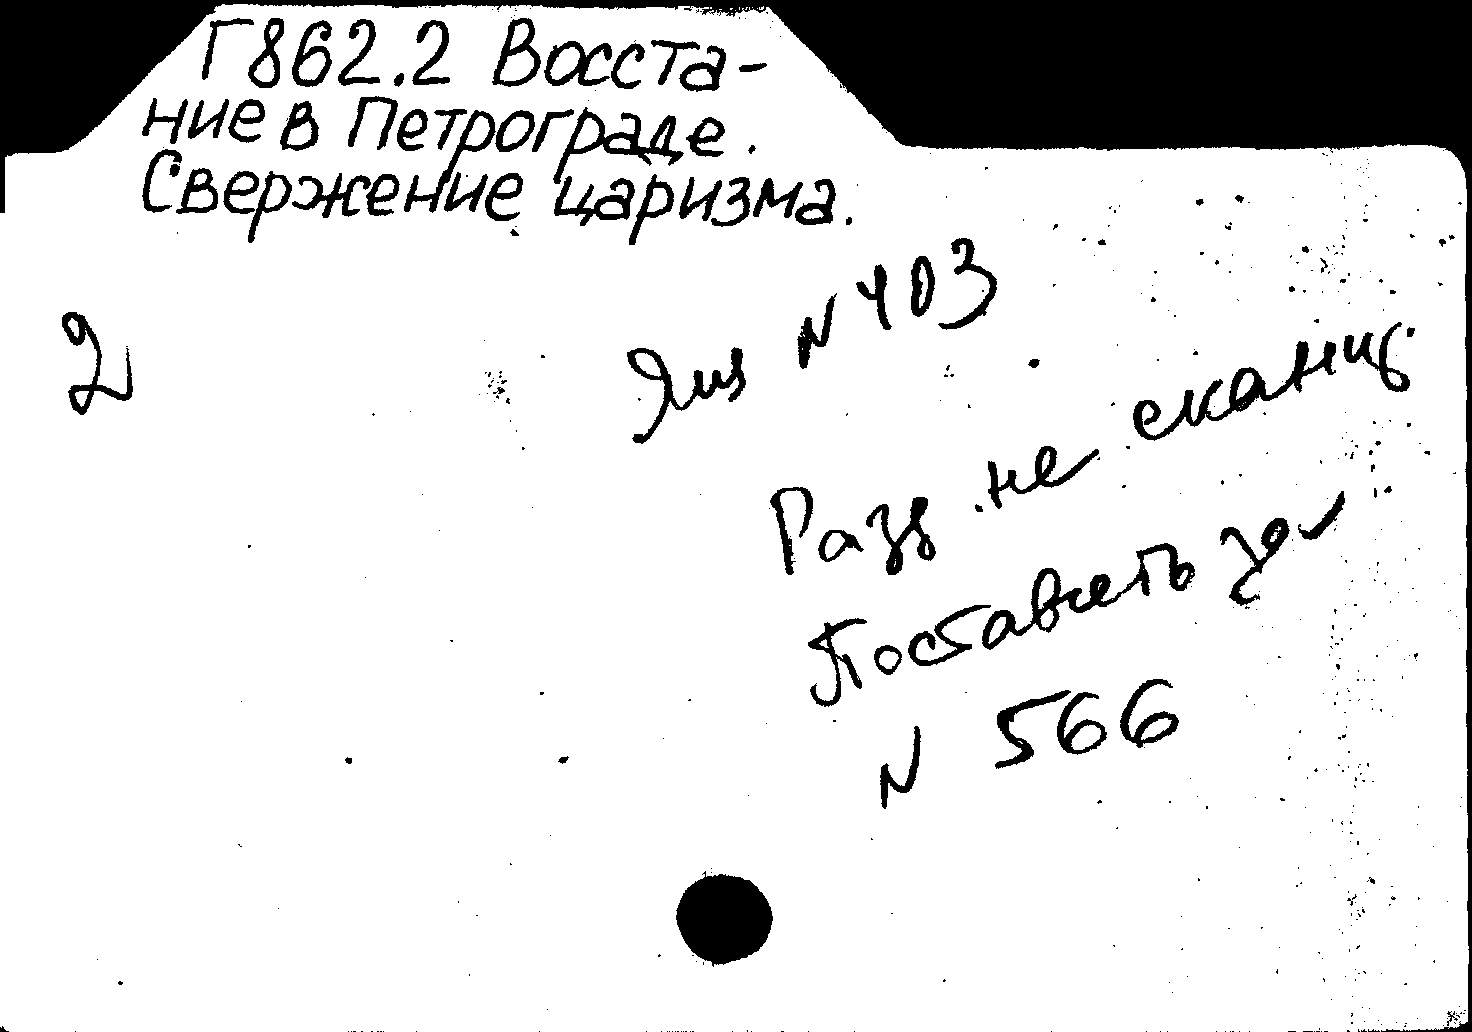 Г862.2 Восста-
ние в Петрограде.
Свержение царизма.
2
Ящ N 403
Разд не сканир
Поставить за
N 566